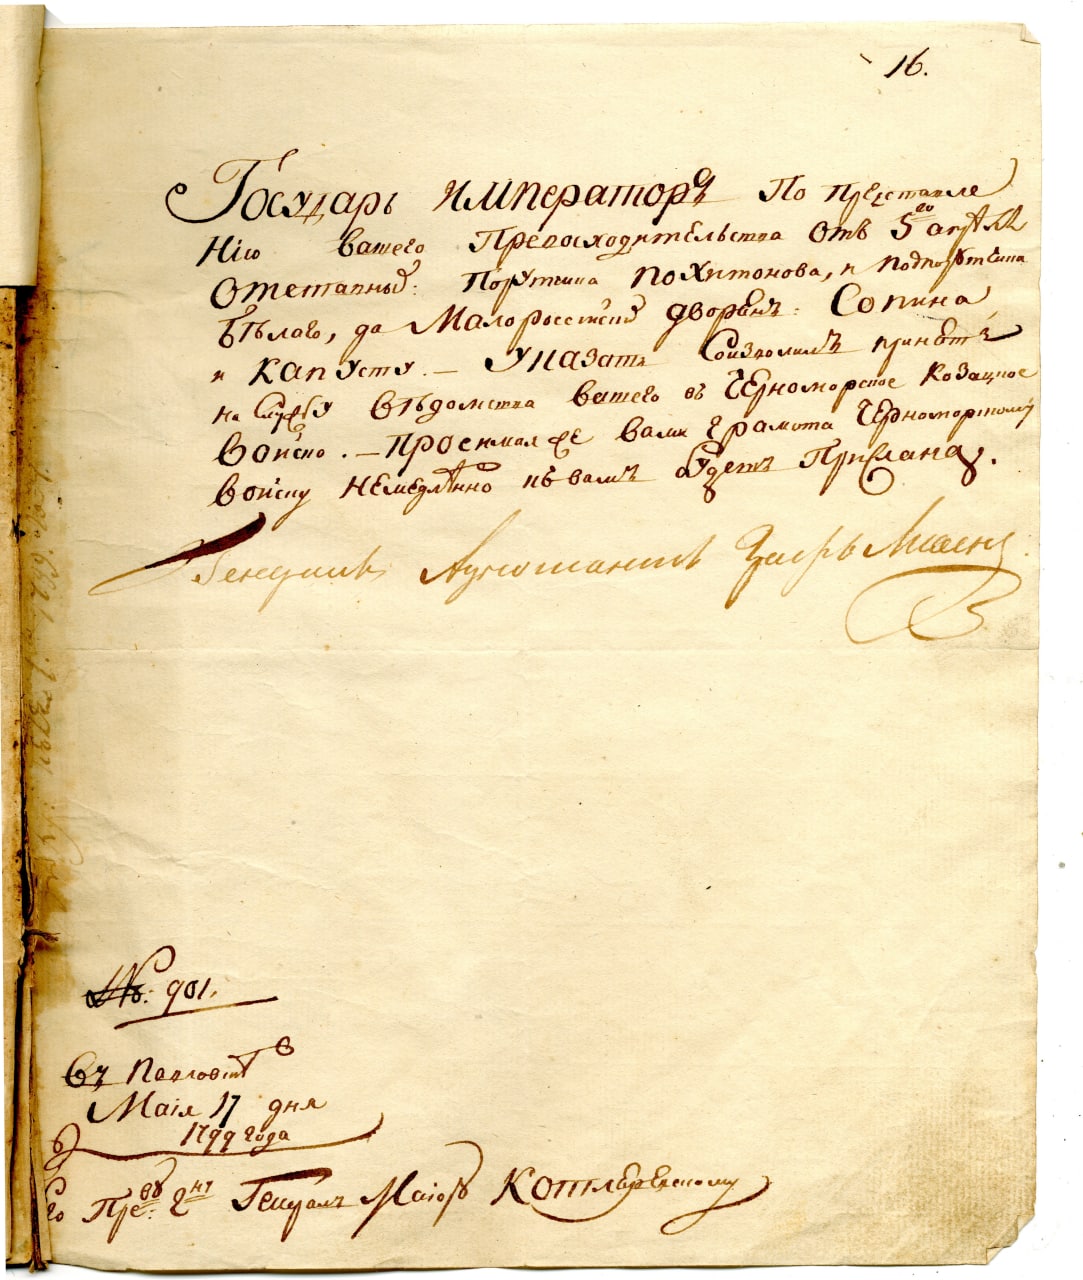 16.
Государь Императоръ По представле
нію вашего Превосходительства отъ 5го апреля
отставныхъ: Порутчика Похитонова, и подпорутчика
Бѣлаго, да Малороссійскихъ дворянъ: Сопина
и Капусту. — Указать соизволилъ принять
на службу вѣдомства вашего въ Черноморское козацкое
войско. — Просимая же вами грамота Черноморскому
войску немедленно къ вамъ будетъ прислана.
Генералъ Адъютантъ
№: 901.
Въ Павловскѣ
Маія 17 дня
1799 года
Его Прев: ву Гну Генералъ Маіоръ Котляревскому